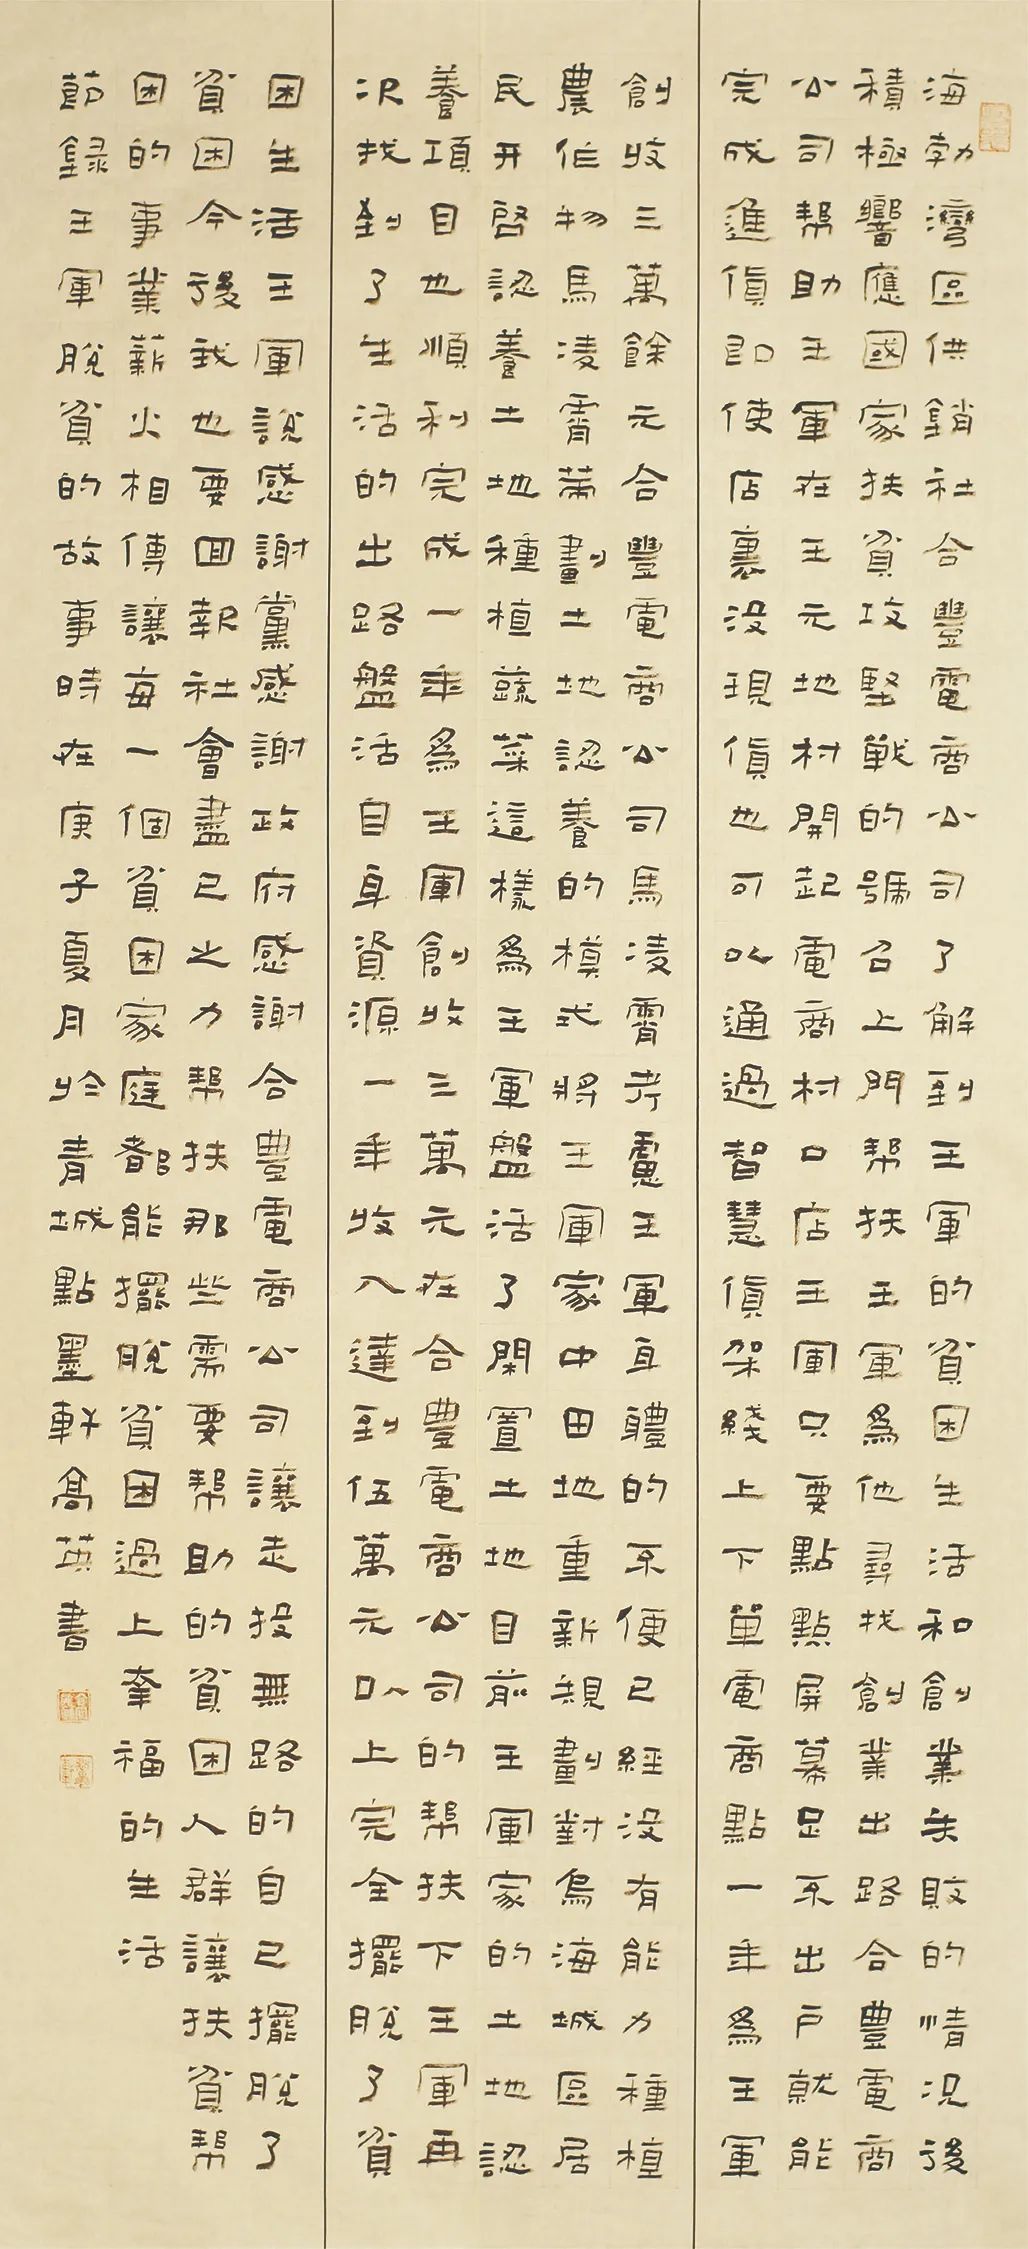 海勃灣區供銷社合豐電商公司了解到王軍的貧困生活和創業失敗的情況後
積極響應國家扶貧攻堅戰的號召上門帮扶王軍爲他尋找創業出路合豐電商
公司帮助王軍在王元地村開起電商村口店王軍只要點點屏幕足不出户就能
完成進貨即使店裏没現貨也可以通過智慧貨架綫上下單電商點一年爲王軍
創收三萬餘元合豐電商公司馬凌霄考慮王軍身體的不便已經没有能力種植
農作物馬凌霄籌劃土地認養的模式將王軍家中田地重新規劃對烏海城區居
民开啓認養土地種植蔬菜這樣爲王軍盤活了閑置土地目前王軍家的土地認
養項目也順利完成一年爲王軍創收三萬元在合豐電商公司的帮扶下王軍再
次找到了生活的出路盤活自身資源一年收入達到伍萬元以上完全擺脱了貧
困生活王軍説感謝黨感謝政府感謝合豐電商公司讓走投無路的自己擺脱了
貧困今後我也要回報社會盡己之力帮扶那些需要帮助的貧困人群讓扶貧帮
困的事業薪火相傳讓每一個貧困家庭都能擺脱貧困過上幸福的生活
節録王軍脱貧的故事時在庚子夏月於青城點墨軒高英書